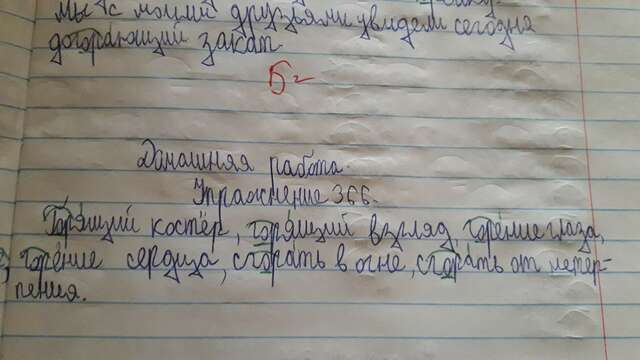 мы с моими друзьями увидели сегодня
догорающий закат.
Домашняя работа.
Упражнение 366.
Горящий костёр, горящий взгляд, горение глаза,
горение сердца, сгорать в огне, сгорать от нетер-
пения.